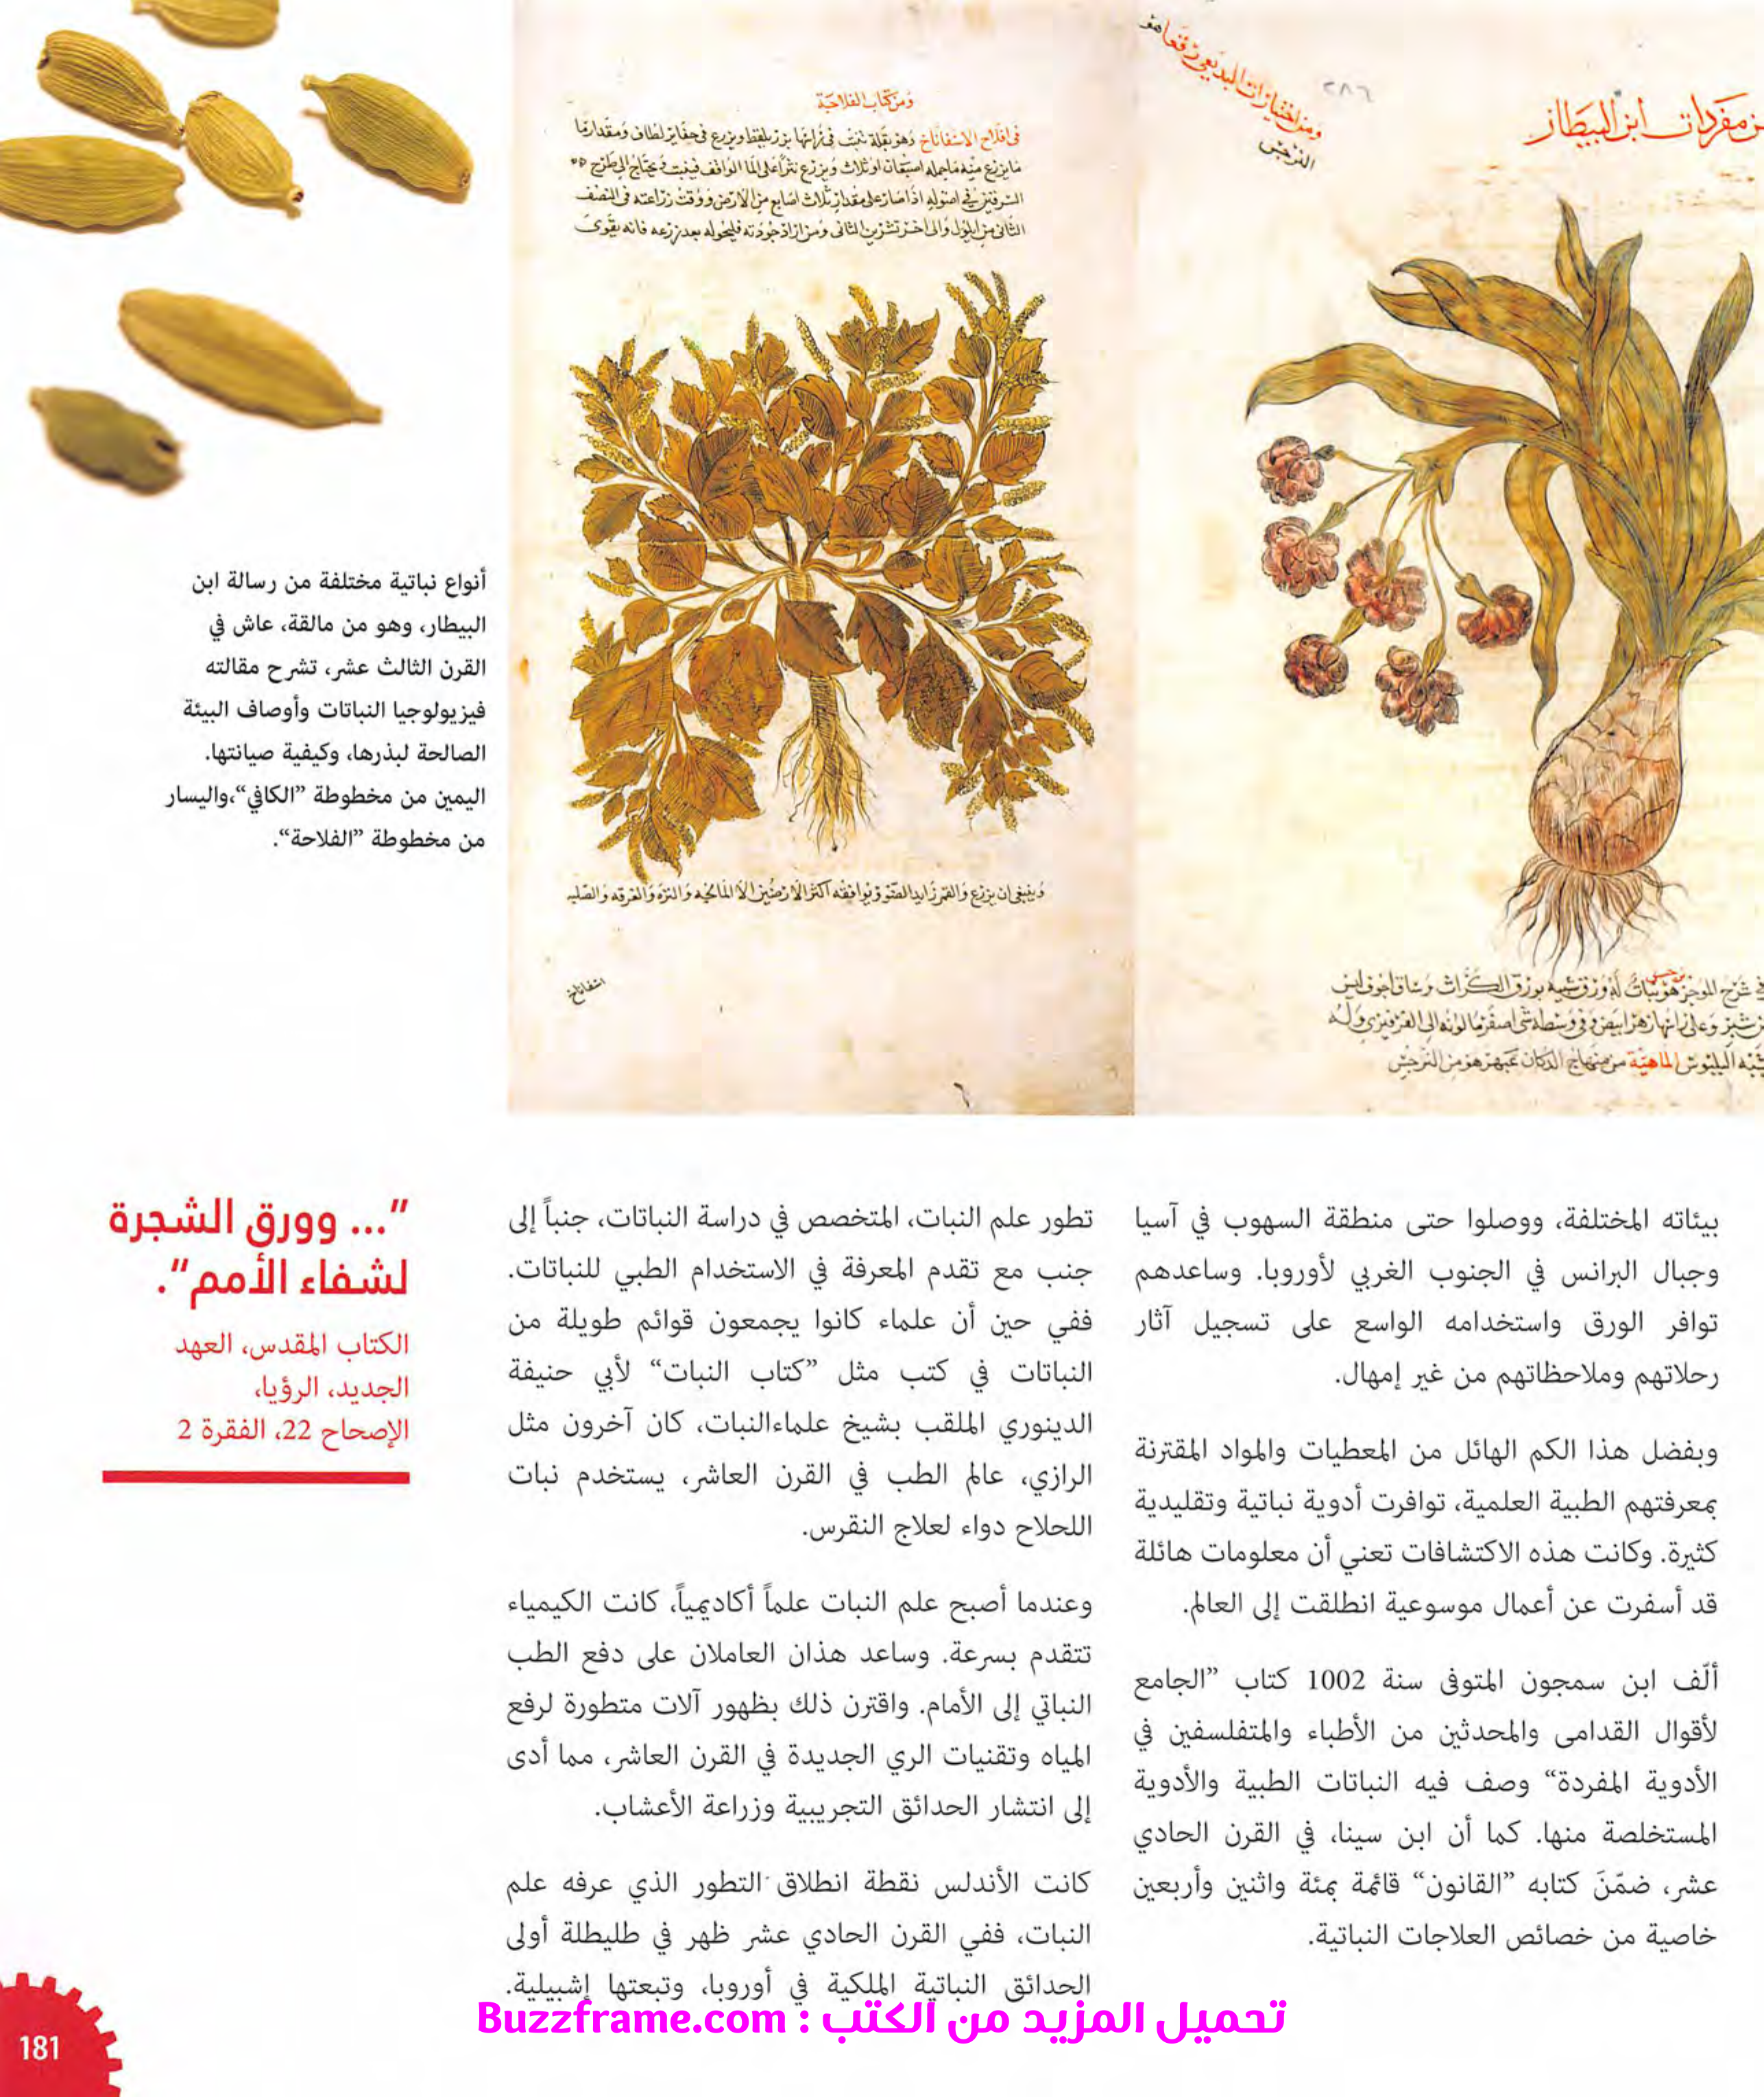 ن مفردات ابن البيطار
ومن اختيارات البديعي
النرجس
٢٨٦
ومن كتاب الفلاحة
في افلاح الاسفاناخ وهو بقلة تنبت في
الثاني من ايلول والى اخر تشرين الثاني ومن اراد جودته فليحوله بعد زرعه فانه يقوى
وينبغي ان يزرع والقمر زايد الضو ويوافقه اكثر الارضين الا المالحه والنزه
اسفاناخ
في شرح الموجز هو نبات له ورق شبيه بورق الكراث وساق اجوف ليس
الماهية من منهاج الدكان عبهر هو من النرجس
أنواع نباتية مختلفة من رسالة ابن
البيطار، وهو من مالقة، عاش في
القرن الثالث عشر، تشرح مقالته
فيزيولوجيا النباتات وأوصاف البيئة
الصالحة لبذرها، وكيفية صيانتها.
اليمين من مخطوطة ”الكافي“،واليسار
من مخطوطة ”الفلاحة“.
بيئاته المختلفة، ووصلوا حتى منطقة السهوب في آسيا
وجبال البرانس في الجنوب الغربي لأوروبا. وساعدهم
توافر الورق واستخدامه الواسع على تسجيل آثار
رحلاتهم وملاحظاتهم من غير إمهال.
وبفضل هذا الكم الهائل من المعطيات والمواد المقترنة
بمعرفتهم الطبية العلمية، توافرت أدوية نباتية وتقليدية
كثيرة. وكانت هذه الاكتشافات تعني أن معلومات هائلة
قد أسفرت عن أعمال موسوعية انطلقت إلى العالم.
ألّف ابن سمجون المتوفى سنة 1002 كتاب ”الجامع
لأقوال القدامى والمحدثين من الأطباء والمتفلسفين في
الأدوية المفردة“ وصف فيه النباتات الطبية والأدوية
المستخلصة منها. كما أن ابن سينا، في القرن الحادي
عشر، ضمّنَ كتابه ”القانون“ قائمة بمئة واثنين وأربعين
خاصية من خصائص العلاجات النباتية.
تطور علم النبات، المتخصص في دراسة النباتات، جنباً إلى
جنب مع تقدم المعرفة في الاستخدام الطبي للنباتات.
ففي حين أن علماء كانوا يجمعون قوائم طويلة من
النباتات في كتب مثل ”كتاب النبات“ لأبي حنيفة
الدينوري الملقب بشيخ علماءالنبات، كان آخرون مثل
الرازي، عالم الطب في القرن العاشر، يستخدم نبات
اللحلاح دواء لعلاج النقرس.
وعندما أصبح علم النبات علماً أكاديمياً، كانت الكيمياء
تتقدم بسرعة. وساعد هذان العاملان على دفع الطب
النباتي إلى الأمام. واقترن ذلك بظهور آلات متطورة لرفع
المياه وتقنيات الري الجديدة في القرن العاشر، مما أدى
إلى انتشار الحدائق التجريبية وزراعة الأعشاب.
كانت الأندلس نقطة انطلاق التطور الذي عرفه علم
النبات، ففي القرن الحادي عشر ظهر في طليطلة أولى
الحدائق النباتية الملكية في أوروبا، وتبعتها إشبيلية.
”... وورق الشجرة
لشفاء الأمم“.
الكتاب المقدس، العهد
الجديد، الرؤيا،
الإصحاح 22، الفقرة 2
تحميل المزيد من الكتب : Buzzframe.com
181